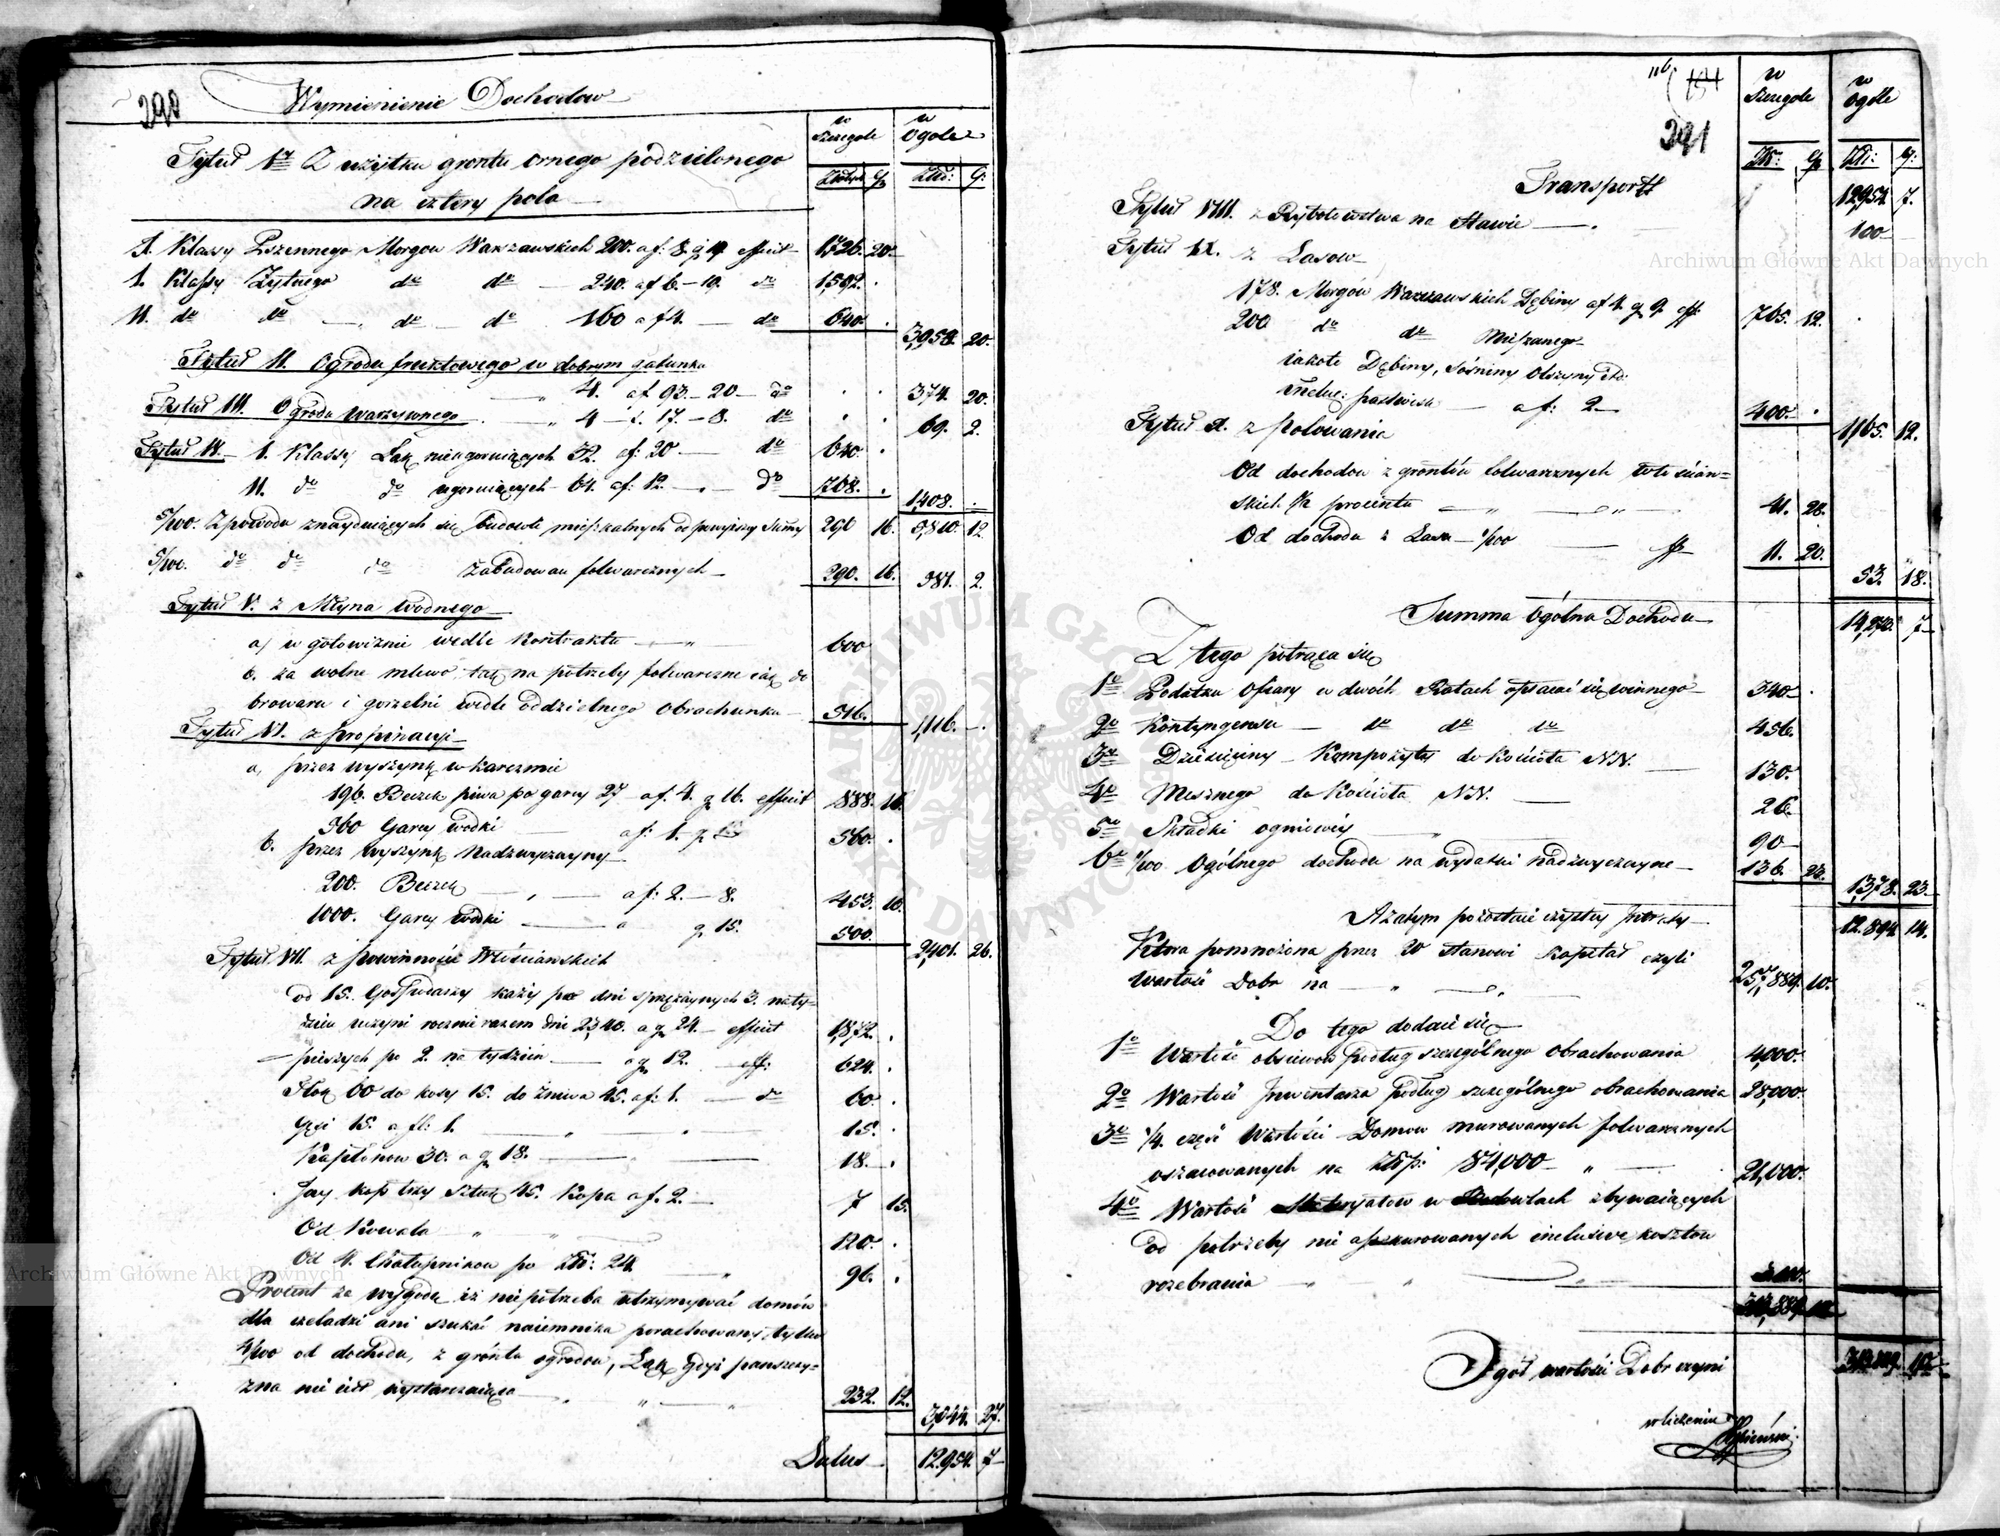 290
Wymienienie Dochodow
w Szczegole
w Ogole
Złotych g.
Złt: g:
Tytuł 1szy Z użytku grontu ornego podzielonego
na cztery pola
1. Klassy Pszennego Morgow Warszawskich 200. a f: 8. g 19. efficit 1726. 20.
1. Klassy Zytniego do do 240. a f 6.–19. do 1,592.
II. do do do do 160 a f 4. do 640. 3,959. 20.
Tytuł II. Ogrodu fruktowego w dobrym gatunku
4. a f 93.–20 do 374. 20.
Tytuł III. Ogrodu warzywnego 4 17.–8. do 69. 2.
Tytuł IV. 1. Klassy Łąk nieugorniących 32. af: 20 do 640.
II. do do ugorniących 64. af: 12. do 768. 1,408.
5/100. Z powodu znayduiących się budowli mieszkalnych od powyższey Summy 290 16. 5,810. 12
5/100. do do do Zabudowań folwarcznych 290. 16. 581. 2.
Tytuł V. z Młyna wodnego
a) w gotowiznie wedle Kontraktu 600
b. za wolne mlewo tak na potrzeby folwarczne iak do
browaru i gorzelni wedle oddzielnego Obrachunku 516. 1,116.
Tytuł VI. z propinacyi
a, przez wyszynk w karczmie
196. Beczek piwa po garcy 27 af. 4. g 16. efficit 888. 16.
560 Garcy wodki af: 1. g 560.
b. przez wyszynk Nadzwyczayny
200. Beczek af: 2.–8. 453. 10.
1000. Garcy wodki g 15. 500. 2,401. 26.
Tytuł VII. z powinności Włościańskich
od 15. Gospodarzy każdy po dni sprzężaynych 3. na ty-
dzień uczyni rocznie razem dni 2340. a g 24. efficit 1,872.
pieszych po 2. na tydzień a g 12. eff: 624.
Tłok 60 do kosy 15. do żniwa 45. af: 1. do 60.
Gęsi 15. a fl: 1. 15.
Kapłonow 30. a g 18. 18.
Jay kop trzy Sztuk 45. Kopa a f. 2. 7 15.
Od Kowala 120.
Od 4. Chałupnikow po Złt: 24. 96.
Procent za wygodę iż nie potrzeba utrzymywać domów
dla czeladzi ani szukać naiemnika porachowany, tylko
4/100 od dochodu, z grontu ogrodow, Łąk, gdyż panszczy-
zna nie iest wystarczaiąca 232. 12. 3,044. 27.
Latus 12,954. 7
116. 191
291
w Szczegole
w Ogóle
Złt: g
Złt: g:
Transport 12,954. 7.
Tytuł VIII. z Rybołowstwa na Stawie 100
Tytuł IX. z Lasow
178. Morgów Warszawskich Dębiny af 4. g 9. eff: 765. 12.
200 do do Mieszanego
iakoto Dębiny, Sośniny Olszyny etc:
includ: pastwiska a f: 2. 400. 1,165. 12.
Tytuł X. z polowania
Od dochodow z grontów folwarcznych włościań-
skich 1/2 procentu 41. 28.
Od dochodu z Lasu 1/100 11. 20. 53. 18.
Summa Ogólna Dochodu 14,273. 7
Z tego potrąca się
1o Podatku Ofiary w dwóch Ratach opłacać się winnego 540
2o Kontyngensu do do do 456.
3o Dziesięciny Kompozyty do Kościoła NN. 130.
4o Mesznego do Kościoła NN. 26.
5o Składki ogniowéy 90
6o 1/100. Ogólnego dochodu na wydatki nadzwyczayne 136. 23. 1,378. 23.
A zatym pozostaie czystey Intraty 12,894. 14.
Ktora pomnożona przez 20 stanowi kapitał czyli
Wartość Dobr na 257,889. 10.
Do tego dodaie się
1o Wartość obsiewow podług szczególnego obrachowania 4,000.
2o Wartość Inwentarza podług szczególnego obrachowania 28,000.
3o 1/4. część Wartości Domow murowanych folwarcznych
oszacowanych na Złtp: 84,000 21,000.
4o Wartość Materyałow w Budowlach zbywaiących
od potrzeby nie aszekurowanych inclusive kosztow
rozebrania
Ogół wartości Dobr czyni
w liczeniu
Archiwum Główne Akt Dawnych
Archiwum Główne Akt Dawnych
ARCHIWUM GŁÓWNE AKT DAWNYCH